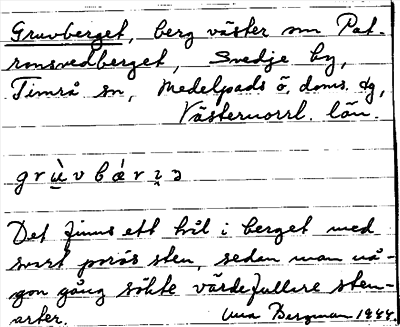 Gruvberget, berg väster om Pat-
ronsvedberget, Svedje by,
Timrå sn, Medelpads ö. doms. dg,
Västernorrl. län.
g r ù v b æ̀ r ı̨ ɔ
Det finns ett hål i berget med
svart porös sten, sedan man nå-
gon gång sökte värdefullare sten-
arter. Una Bergman 1944.